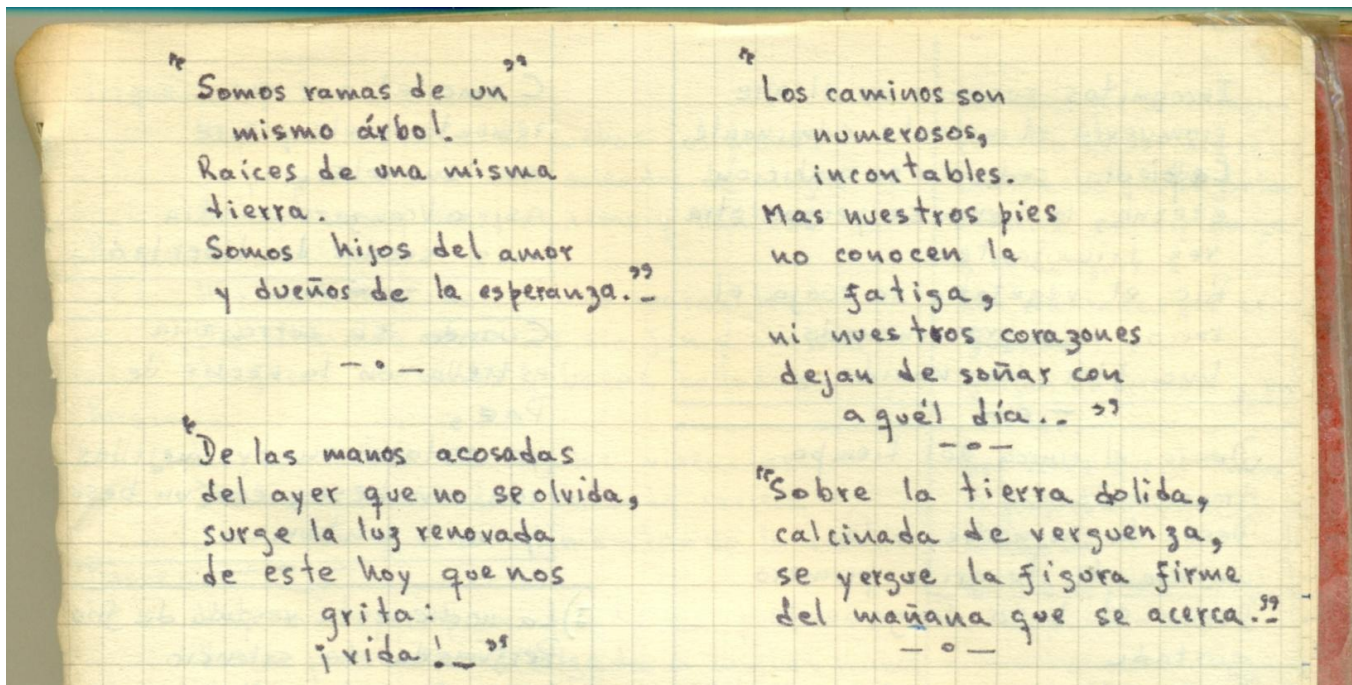 "Somos ramas de un"
mismo árbol.
Raíces de una misma
tierra.
Somos hijos del amor
y dueños de la esperanza."_
— ° —
"De las manos acosadas
del ayer que no se olvida,
surge la luz renovada
de este hoy que nos
grita:
¡vida!_"
"Los caminos son
numerosos,
incontables.
Mas nuestros pies
no conocen la
fatiga,
ni nuestros corazones
dejan de soñar con
aquél día._"
— o —
"Sobre la tierra dolida,
calcinada de verguenza,
se yergue la figura firme
del mañana que se acerca."_
— o —